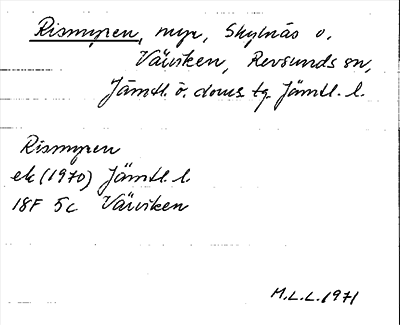 Rismyren, myr, Skylnäs o.
Väviken, Revsunds sn,
Jämtl. ö. doms. tg. Jämtl. l.
Rismyren
ek (1970) Jämtl. l.
18F 5c Väviken
M.L.L. 1971